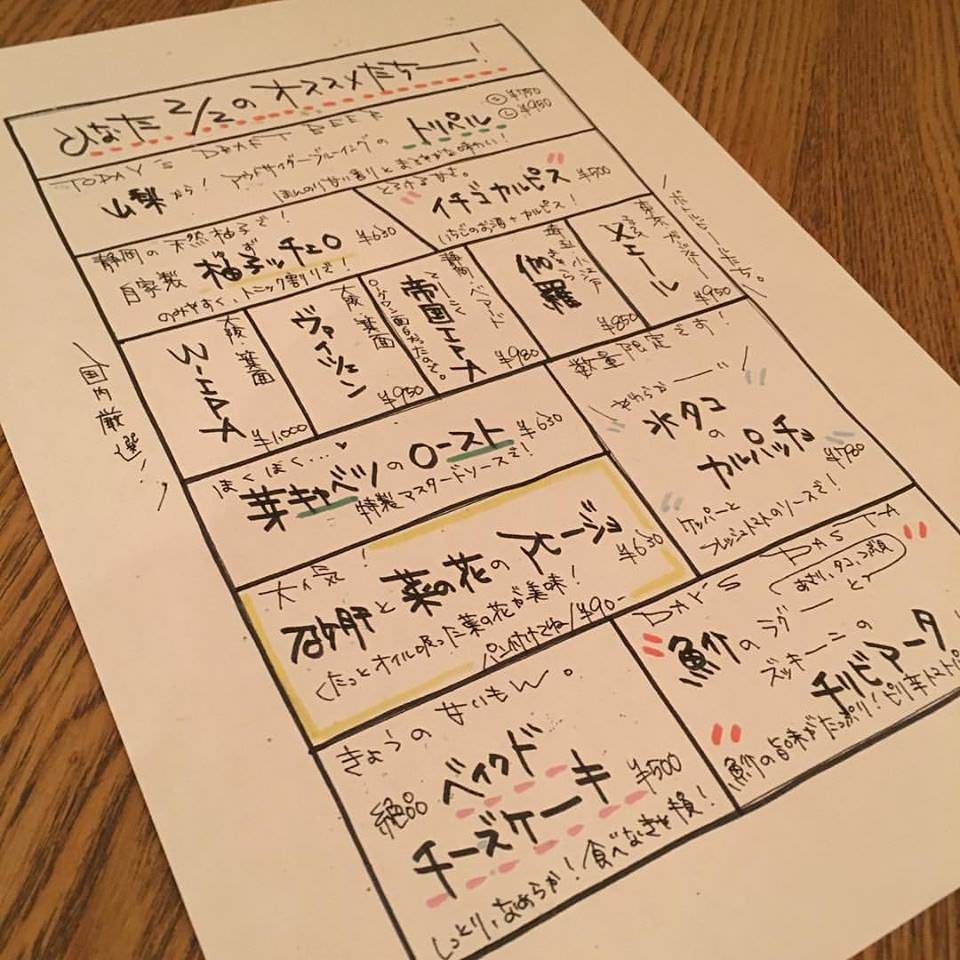 ひなた 2/2の オススメたちー!
TODAY'S DRAFT BEER
山梨から! アウトサイダーブルーイングの トリペル
¥950
ほんのり甘い香りとまろやかな味わい!
とろける甘さ。
イチゴカルピス ¥500
いちごのお酒+カルピス!
静岡の天然柚子で!
自家製 柚子ッチェロ ¥630
ゆず
のみやすく、トニック割りで!
国内厳選
ボトルビールたち。
大阪・箕面
W-IPA
¥1,000
大阪・箕面
ヴァイツェン
¥950
静岡・ベアード
帝国IPA
¥980
埼玉・小江戸
伽羅
きゃら
¥850
¥950
ほくほく…
芽キャベツのロースト ¥630
特製マスタードソースで!
数量限定です!
やわらかー
水タコの
カルパッチョ
¥780
ケッパーと
フレッシュトマトのソースで!
大人気!
砂肝と菜の花のアヒージョ
¥630
くたっとオイル吸った菜の花が美味!
パン付けてね/¥90-
DAY'S PASTA
魚介のラグーと
ズッキーニの
チリビアータ
魚介の旨味がたっぷり!ピリ辛トマト
きょうの甘いもん。
絶品 ベイクド
チーズケーキ ¥500
しっとり、なめらか!食べなきゃ損!